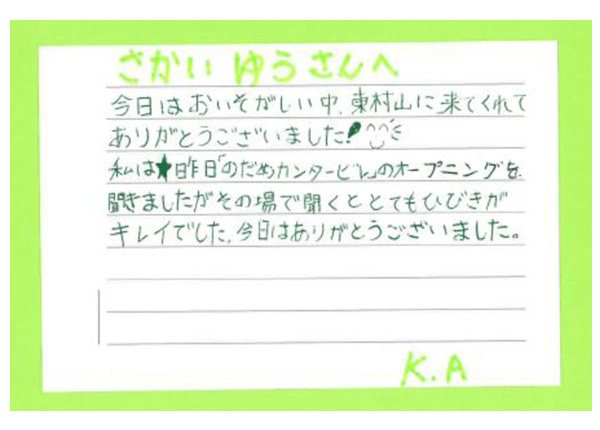 さかい ゆうさんへ
今日はおいそがしい中、東村山に来てくれて
ありがとうございました!
私は★昨日「のだめカンタービレ」のオープニングを
聞きましたがその場で聞くととてもひびきが
キレイでした。今日はありがとうございました。
K.A